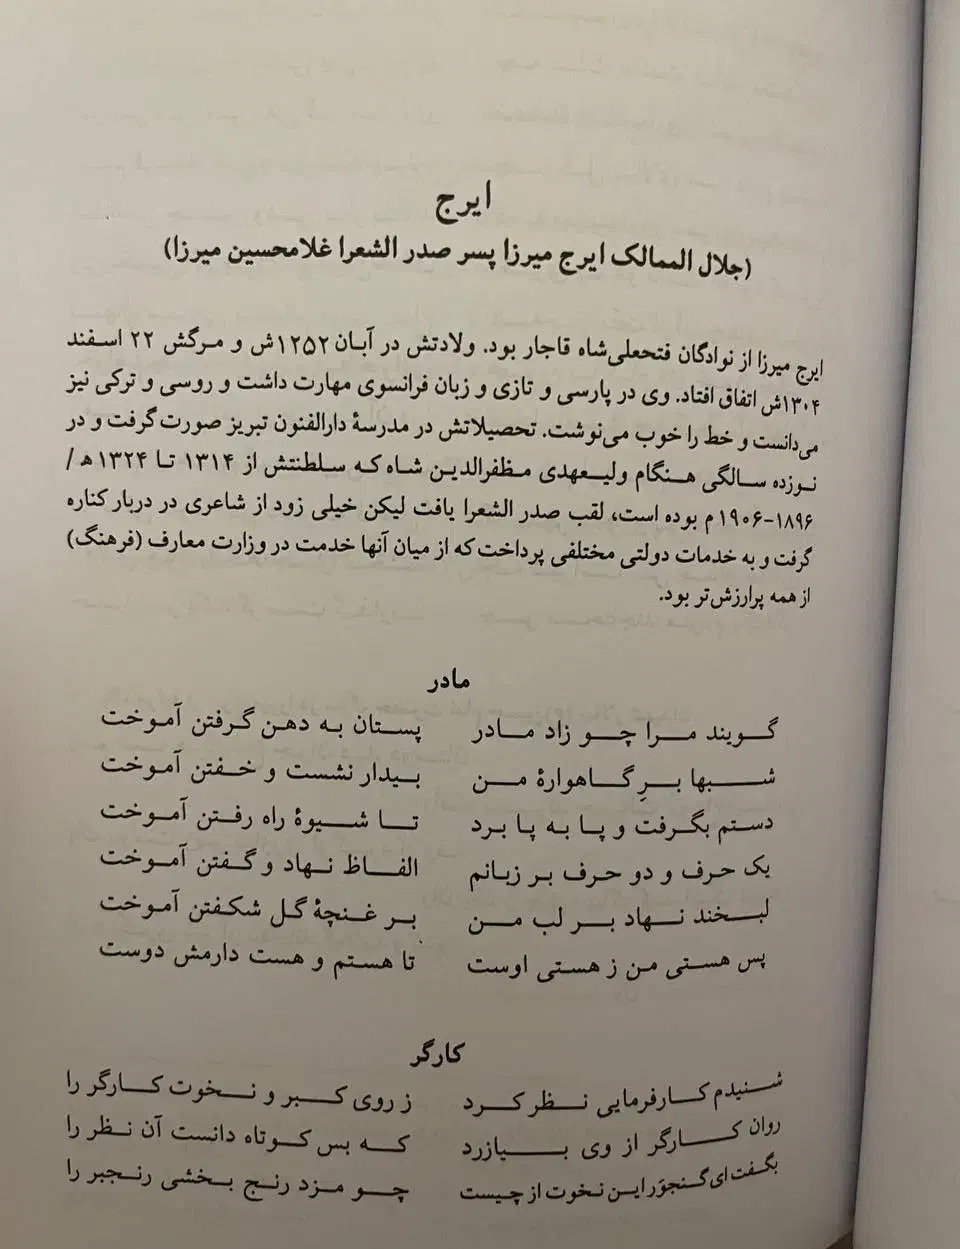 ایرج
(جلال الممالک ایرج میرزا پسر صدر الشعرا غلامحسین میرزا)
ایرج میرزا از نوادگان فتحعلی‌شاه قاجار بود. ولادتش در آبان ۱۲۵۲ش و مرگش ۲۲ اسفند
۱۳۰۴ش اتفاق افتاد. وی در پارسی و تازی و زبان فرانسوی مهارت داشت و روسی و ترکی نیز
می‌دانست و خط را خوب می‌نوشت. تحصیلاتش در مدرسهٔ دارالفنون تبریز صورت گرفت و در
نوزده سالگی هنگام ولیعهدی مظفرالدین شاه که سلطنتش از ۱۳۱۴ تا ۱۳۲۴ ه‍ /
۱۸۹۶-۱۹۰۶م بوده است، لقب صدر الشعرا یافت لیکن خیلی زود از شاعری در دربار کناره
گرفت و به خدمات دولتی مختلفی پرداخت که از میان آنها خدمت در وزارت معارف (فرهنگ)
از همه پرارزش‌تر بود.
مادر
گویند مرا چو زاد مادر پستان به دهن گرفتن آموخت
شبها برِ گاهوارهٔ من بیدار نشست و خفتن آموخت
دستم بگرفت و پا به پا برد تا شیوهٔ راه رفتن آموخت
یک حرف و دو حرف بر زبانم الفاظ نهاد و گفتن آموخت
لبخند نهاد بر لب من بر غنچهٔ گل شکفتن آموخت
پس هستی من ز هستی اوست تا هستم و هست دارمش دوست
کارگر
شنیدم کارفرمایی نظر کرد ز روی کبر و نخوت کارگر را
روان کارگر از وی بیازرد که بس کوتاه دانست آن نظر را
بگفت ای گنجوَر این نخوت از چیست چو مزد رنج بخشی رنجبر را